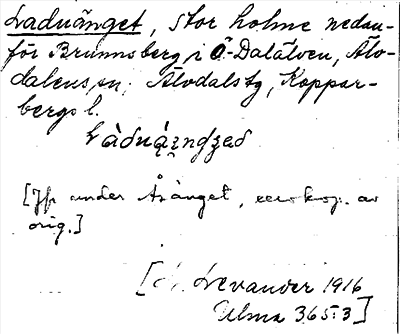 Laduänget, stor holme nedan-
för Brunnsberg i Ö-Dalälven, Älv-
dalens sn, Älvdals tg, Koppar-
bergs l.
[Jfr under Åränget, av
orig.]
[ Levander 1916
Ulma 365:3]